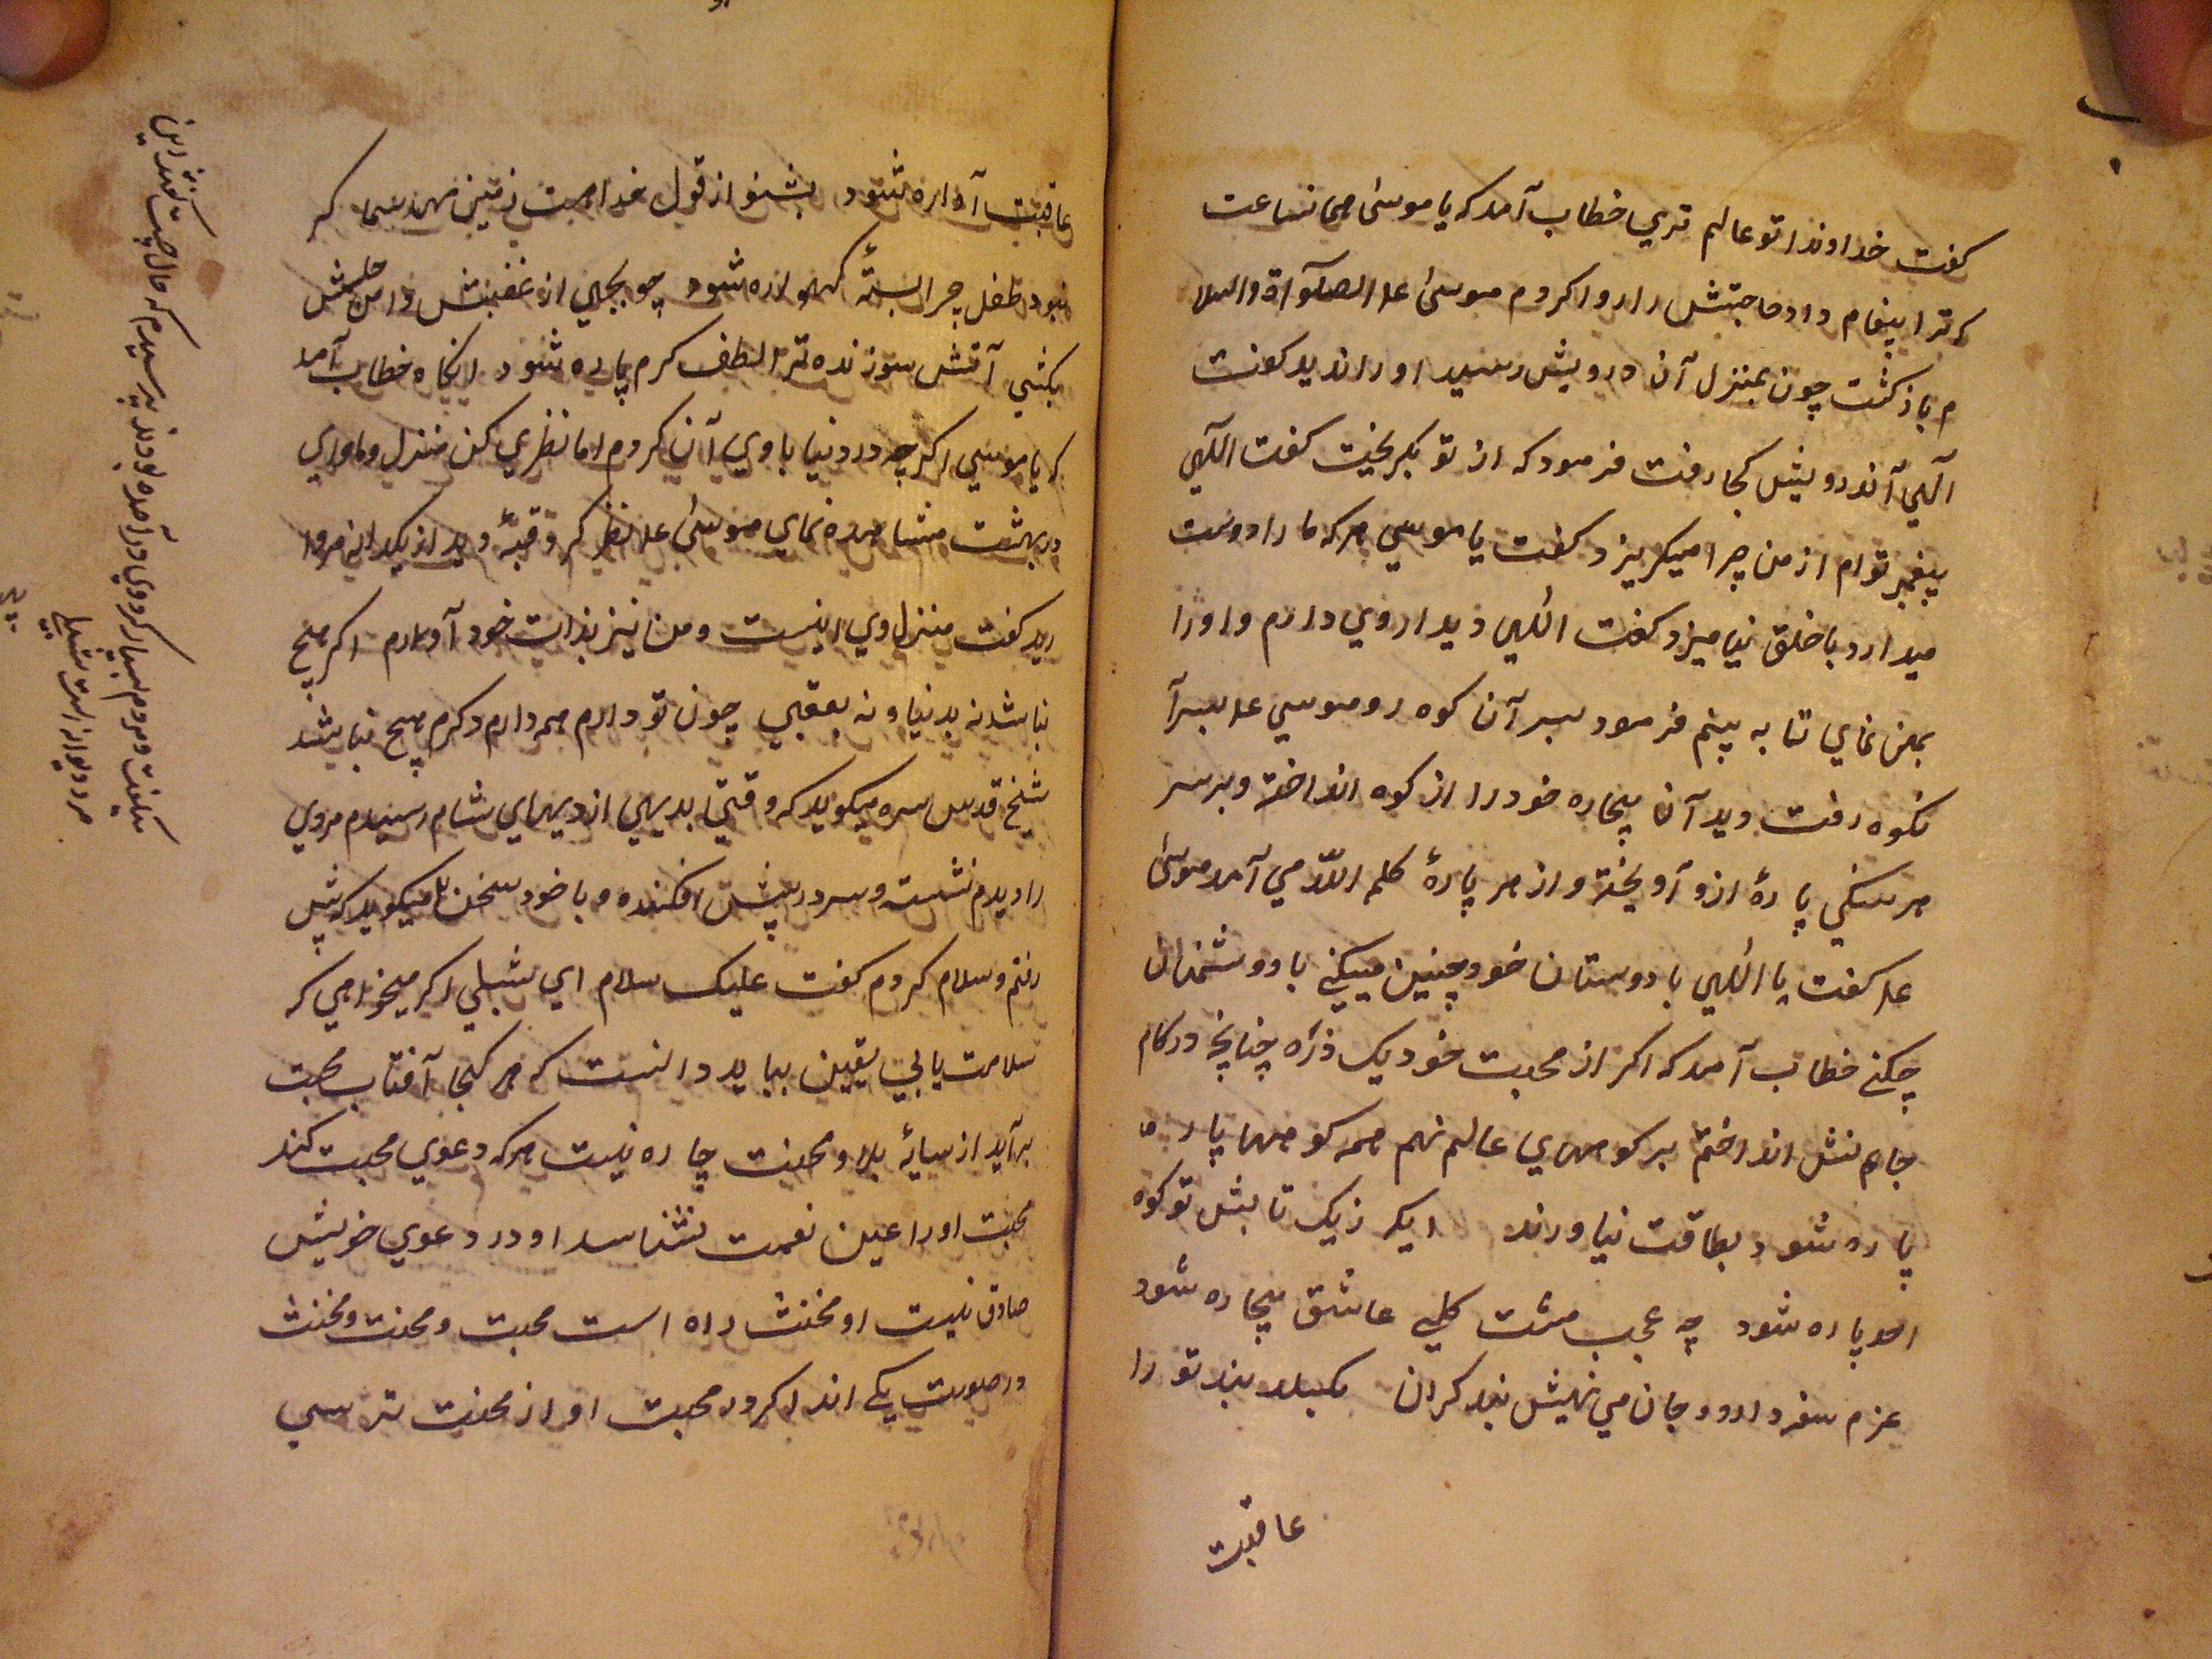 کفت خداوندا تو عالم تري خطاب آمد که یا موسی همانساعت
که ترا پیغام داد حاجتش را روا کردم موسی علا الصلوٰة والسلا
م بازکشت چون بمنزل آن درویش رسید او را ندید کفت
آلهي آندرویش کجا رفت فرمود که از تو بکریخت کفت اللهي
پیغمبر توام از من چرا میکریزد کفت یا موسي هرکه ما را دوست
میدارد با خلق نیامیزد کفت اللهي دیدار وي دارم و او را
بمن نماي تا به بینم فرمود بسر آن کوه رو موسي علا بسر آ
نکوه رفت دید آن بیچاره خود را از کوه انداخته و بر سر
هر سنکي پارهٔ ازو آویخته و از هر پارهٔ کلمه اللّه مي آمد موسی
علا کفت یا اللهي با دوستان خود چنین میکني با دوشمنان
چکني خطاب آمد که اکر از محبت خود یک ذره چنانچه در کام
جانش انداختم بر کوههاي عالم نهم همه کوهها پاره
پاره شود بطاقت نیاورند ایکه زیک تابش تو کوه
احد پاره شود چه عجب مشت کلي عاشق بیچاره شود
عزم سفر دارد و جان مي نهیش بند کران بکسلد بند تو را
عاقبت
عاقبت آواره شود بشنو از قول خدا هست زمین مهد شما کر
نبود طفل چرا بستهٔ کهواره شود چو بجهي از غضبش دامن حلمش
بکشي آتش سوزنده ترا لطف کرم پاره شود انکاه خطاب آمد
که یا موسي اکرچه در دنیا با وي آن کردم اما نظري کن منزل و ماواي
در بهشت مشاهده نماي موسی علا نظر کرد قبهٔ دید از یکدانه مروا
رید کفت منزل وي اینست و من نیز بذات خود آو دارم اکر هیچ
نباشد نه بدنیا و نه بعقبي چون تو دارم همه دارم دکرم هیچ نباشد
شیخ قدس سره میکوید که وقتي بدیهي از دیهاي شام رسیدم مردي
را دیدم نشسته و سر در پیش افکنده و با خود سخن میکوید که پیش
رفتم و سلام کردم کفت علیک سلام اي شبلي اکر میخواهي که
سلامت یابي یقین بباید دانست که هر کجا آفتاب محبت
برآید از سایهٔ بلا و محنت چاره نیست هرکه دعوي محبت کند
محبت او را عین نعمت نشناسد او در دعوي خویش
صادق نیست او مخنث راه است محبت و محنت و مخنث
در صورت یکي اند اکر در محبت او از محنت ترسي